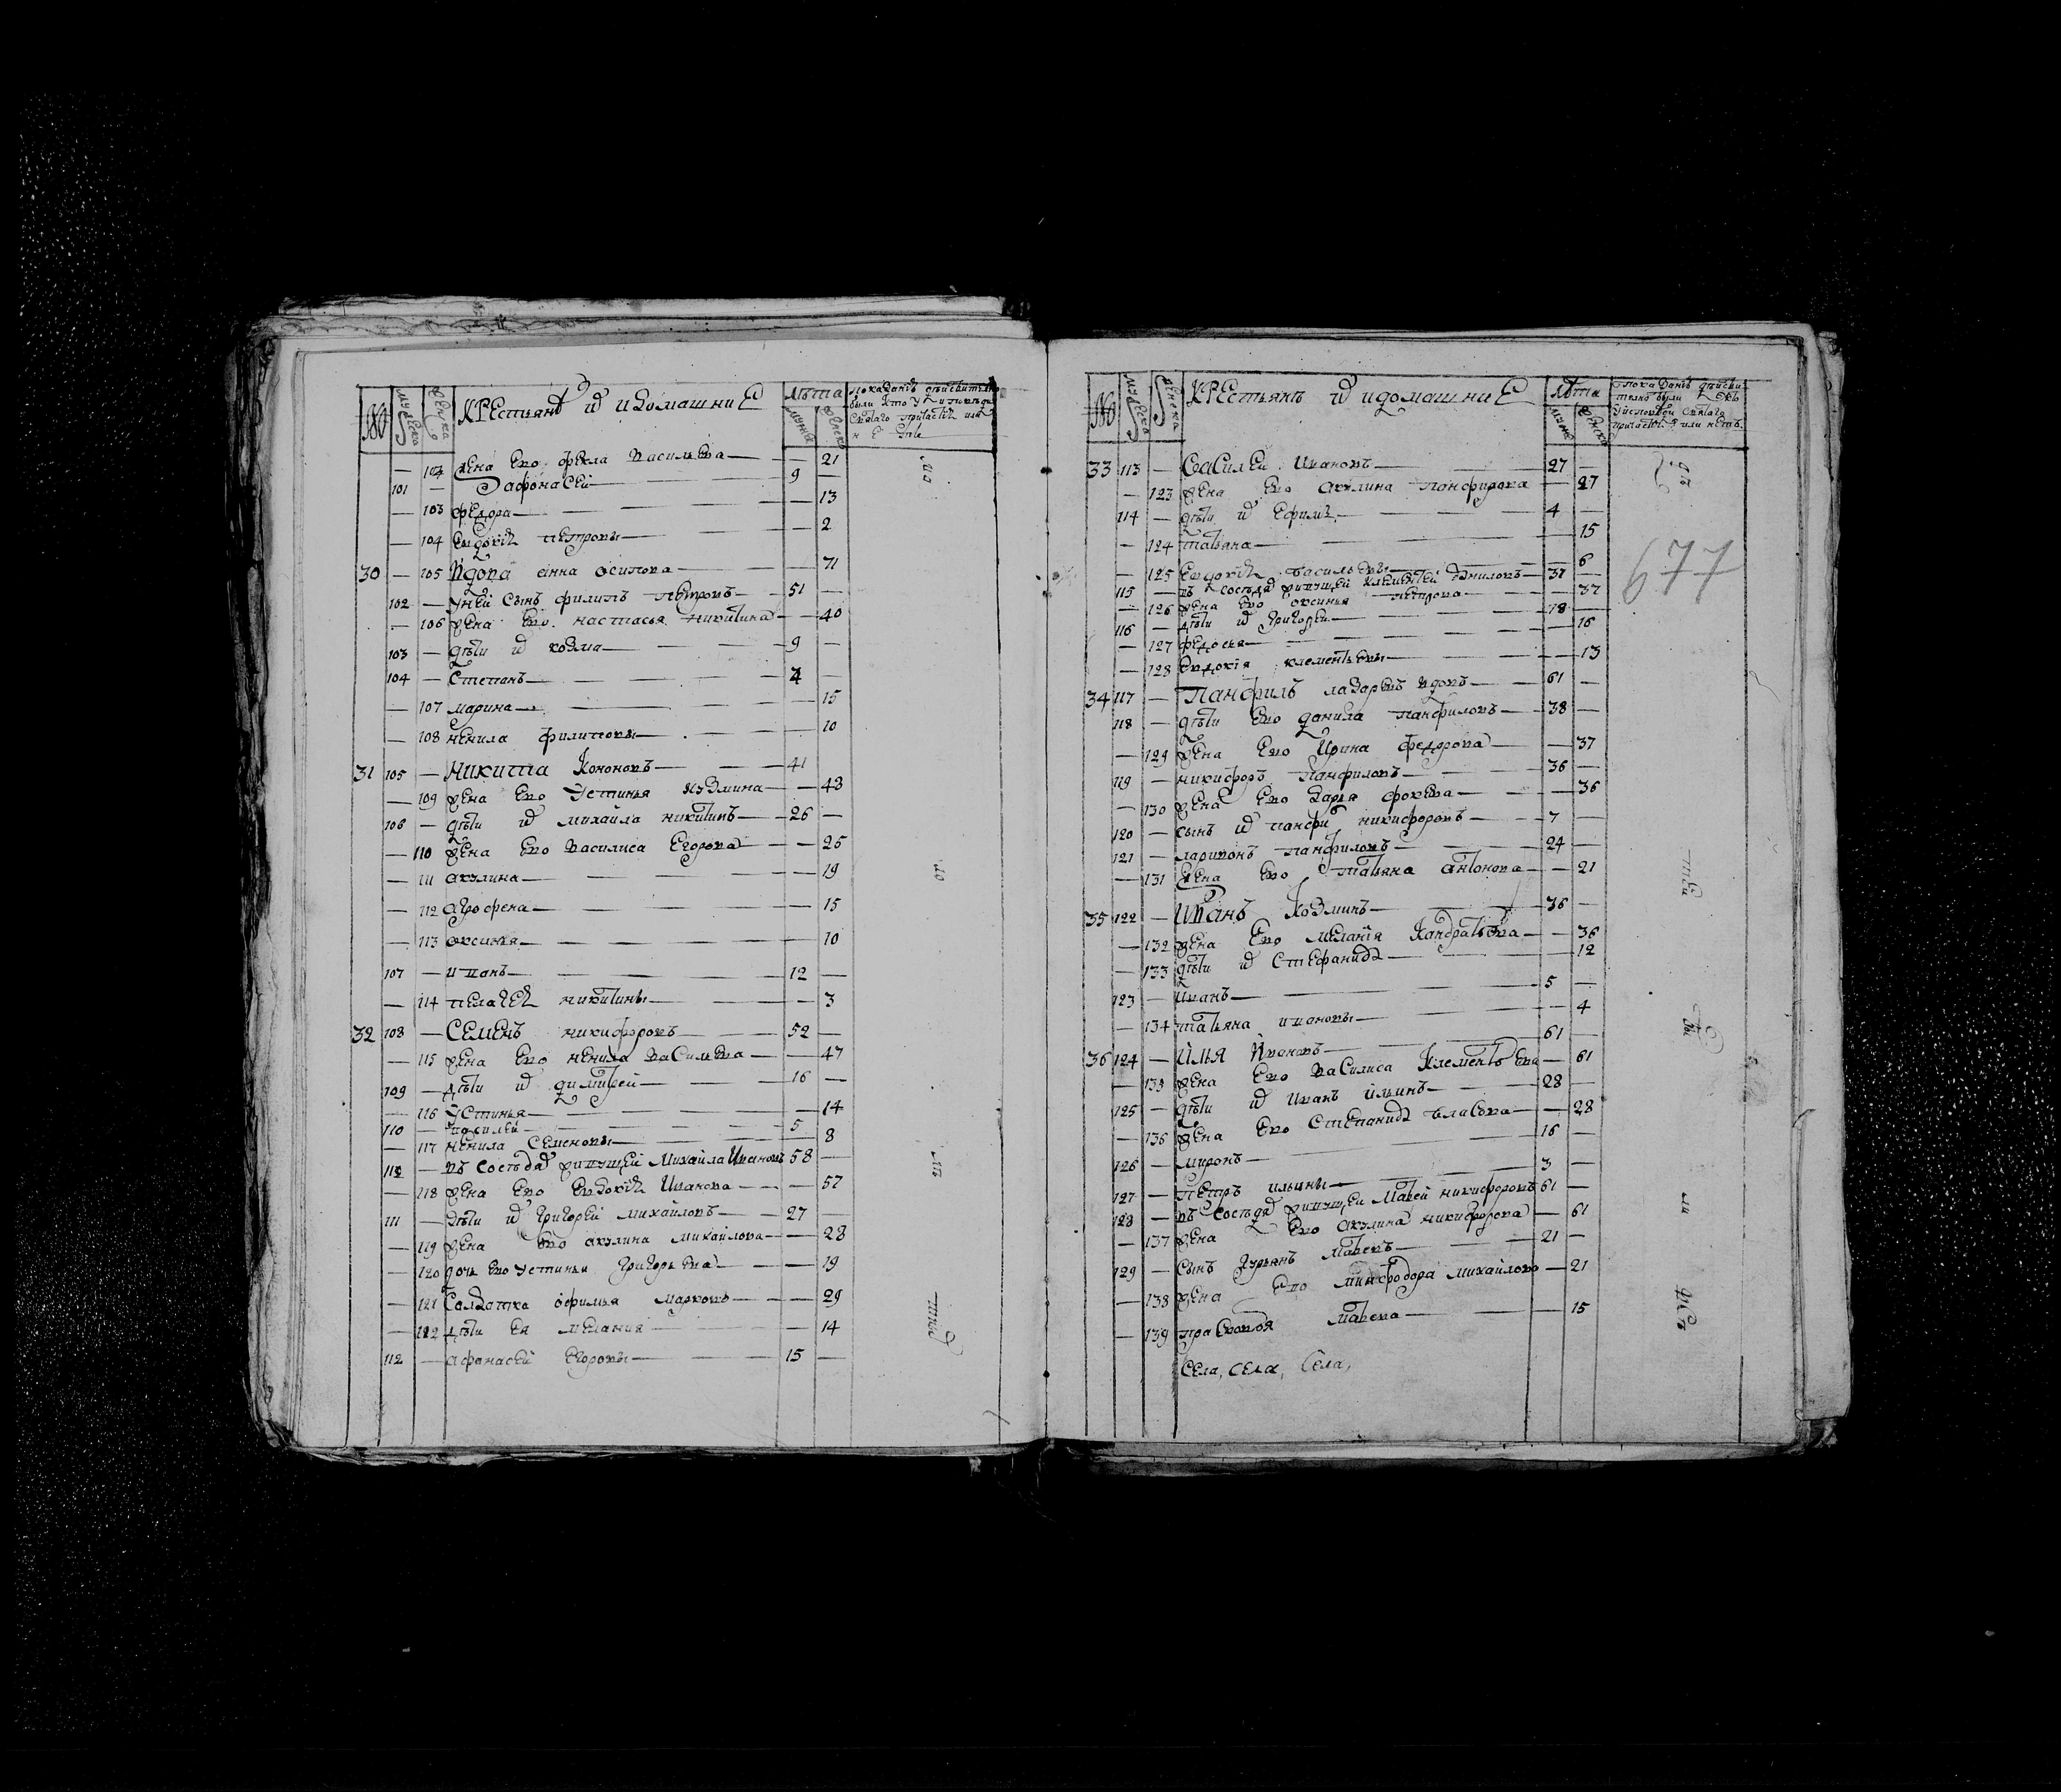 № мужеска женска КРЕстьянъ и ихъ домашниЕ Лѣта мужеска женска
— 102 жена Ево фекла васильева — — 21
101 — афонасеи — 9 —
— 103 федора — — 13
— 104 Евдокія петровы — — 2
30 — 105 Вдова анна осипова — — 71
102 — У ней сынъ филипъ петровъ — 51 —
— 106 жена Ево настасья никитина — — 40
103 — дѣти их козма — 9 —
104 — Степанъ —
— 107 марина — — 15
— 108 ненила филиповы — — 10
31 105 — Никита Кононовъ — 41 —
— 109 жена Ево Устинья кузмина — — 43
106 — дѣти их михайла никитинъ — 26 —
— 110 жена Ево василиса Егорова — — 25
— 111 акулина — — 19
— 112 агрофена — — 15
— 113 оксинья — — 10
107 — иванъ — 12 —
— 114 пелагея никитины — — 3
32 108 — Семенъ никифоровъ — 52 —
— 115 жена Ево ненила васильева — — 47
109 — дѣти их димитрей — 16 —
— 116 Устинья — — 14
110 — василей — 5 —
— 117 ненила Семеновы — — 8
112 — въ сосѣдях живущей Михайла Ивановъ 58 —
— 118 жена Ево Евдокія Иванова — — 57
111 — дѣти их Григорей михайловъ — 27 —
— 119 жена Ево акулина михайлова — — 28
— 120 дочь Ево устинья Григорьева — — 19
— 121 Солдатка офимья маркова — — 29
— 122 дѣти Ея мелания — — 14
112 — афанасей Егоровы — 15 —
№ мужеска женска КРЕстьянъ и ихъ домашниЕ Лѣта мужеска женска
33 113 — Василеи Ивановъ — 27 —
— 123 жена Ево акулина панфирова — 27
114 — дѣти их Ефимъ — 4 —
— 124 татьяна — — 15
— 125 Евдокія васильевы — — 6
115 — въ сосѣдях живущей Клементей Даниловъ — 37 —
— 126 жена Ево оксинья петрова — — 37
116 — дѣти их Григорей — 18 —
— 127 федосья — — 16
— 128 Евдокія клементьевы — — 13
34 117 — Панфилъ лазаревъ вдовъ — 61 —
118 — дѣти Ево данила панфиловъ — 38 —
— 129 жена Ево Ирина федорова — — 37
119 — никифоръ Панфиловъ — 36 —
— 130 жена Ево Дарья фокеева — — 36
120 — сынъ их панфил никифоровъ — 7 —
121 — ларивонъ панфиловъ — 24 —
— 131 жена Ево татьяна антонова — — 21
35 122 — Иванъ Козминъ — 36 —
— 132 жена Ево мелания Кандратьева — — 36
— 133 дѣти их Стефанида — — 12
123 — Иванъ — 5 —
— 134 татьяна ивановы — — 4
36 124 — Илья Ивановъ — 61 —
— 135 жена Ево василиса Клементьева — 61
125 — дѣти их Иванъ ильинъ — 28 —
— 136 жена Ево Степанида власова — — 28
126 — миронъ — 16 —
127 — петръ ильины — 3 —
128 — въ сосѣдях живущеи Матвей никифоровъ 61 —
— 137 жена Ево акулина никифорова — 61
129 — Сынъ Гурьянъ матвевъ — 21 —
— 138 жена Ево минфодора михайлова — 21
— 139 прасковья матвева — — 15
Села, села, Села,
677